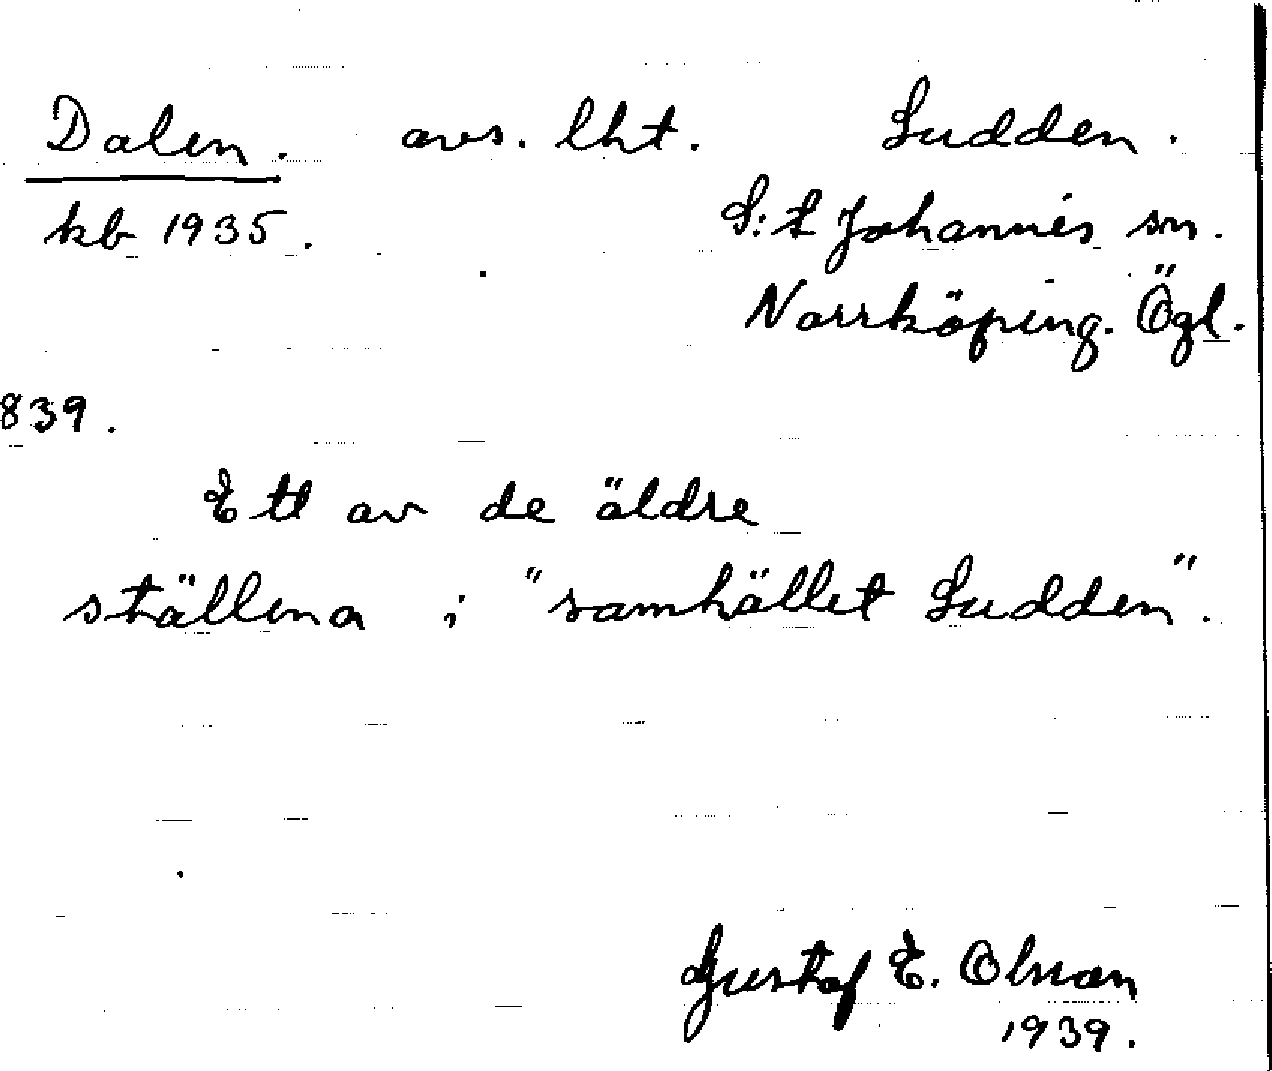 Dalen. avs. lht. Sudden.
kb 1935. S:t Johannes sn.
Norrköping. Ögl.
839.
Ett av de äldre
ställena i "samhället Sudden".
Gustaf E. Olsson
1939.